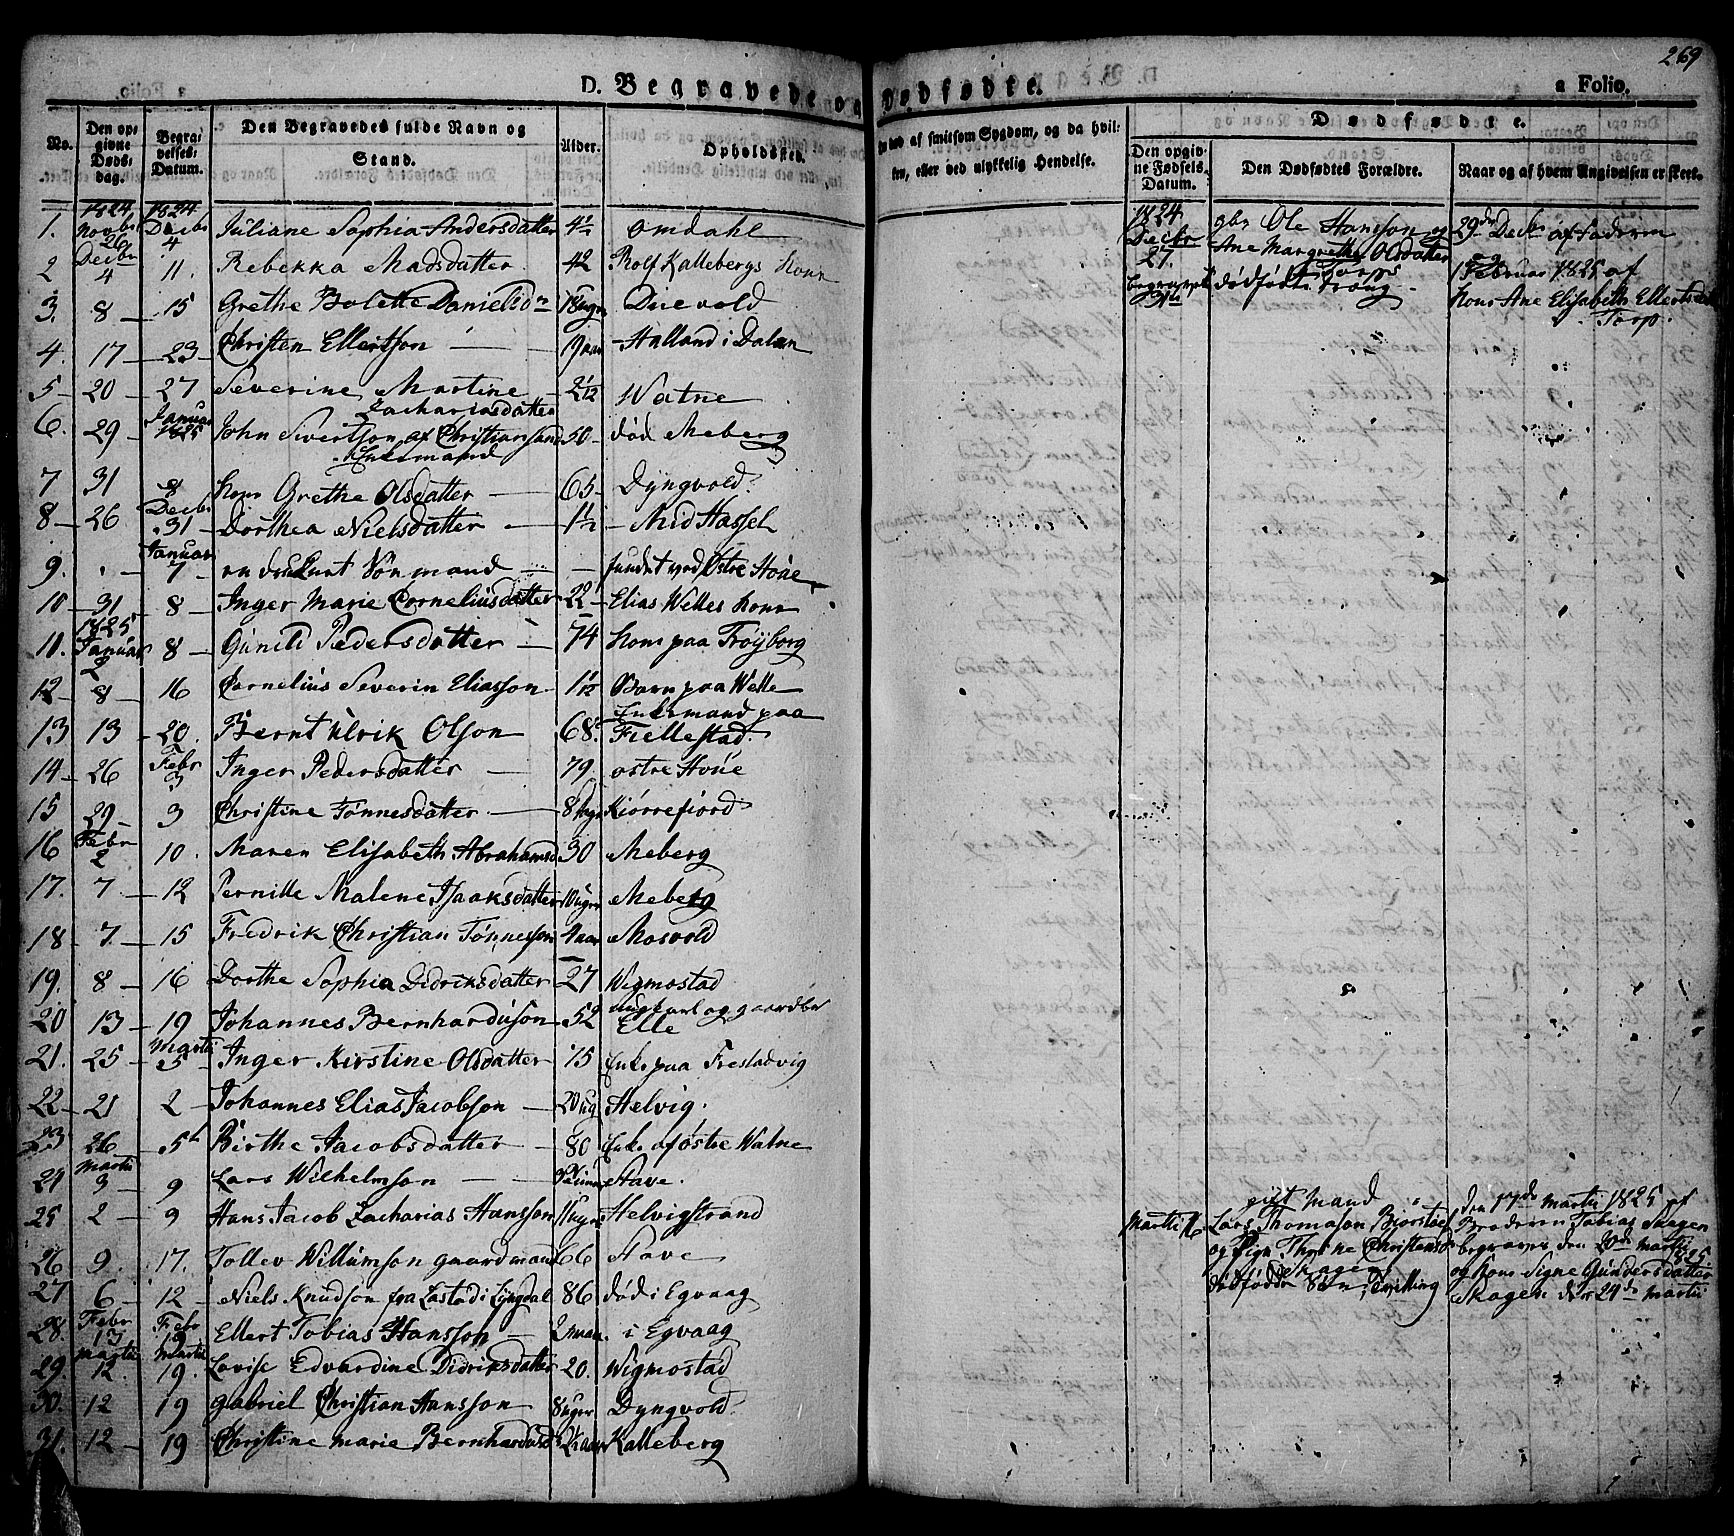 269
D. Begravede og Dødfødte.
a Folio.
No.
Den opgivne Døds-dag.
Begravelses-Datum.
Den Begravedes fulde Navn og Stand.
Alder.
Opholdssted.
af smitsom Sygdom, og da hvilken, eller ved ulykkelig Hendelse.
Dødfødte.
Den opgivne Fødsels-Datum.
Den Dødfødtes Forældre.
Naar og af hvem Angivelsen er skeet.
1. 1824 Novbr 26 1824 Decbr 4 Juliane Sophia Andersdatter 4½ Omdahl
2 Decbr 4 11. Rebekka Madsdatter 42 Rolf Kallebergs Kone
3. 8 15 Grethe Bolette Danielsdr 18 Uger Duevold
4. 17 23 Christen Ellertson 19 aar Halland i Dalen
5 20 27 Severine Martine Zachariasdatter 2/12 Watne
6. 29 Januar 1825 John Sivertson af Christiansand Enkemand 50 død Meberg
7 31 8 Kone Grethe Olsdatter 65 Dyngvold
8 26 Decbr 31 Dorthea Nielsdatter 1½ Mid Hassel
9. Januar 7 en drukent Sømand fundet ved Østre Hoüe
10 31 8 Inger Marie Corneliusdatter 22 Elias Welles Kone
11. 1825 Januar 2 8 Gunild Pedersdatter 74 Kone paa Trøyborg
12 8 16 Cornelius Severin Eliasson 1/12 Barn paa Welle
13 13 20. Bernt Ulrik Olson 68. Enkemand paa Fiellestad
14 26 Febr 3 Inger Pedersdatter 79 Østre Hoüe
15 29 3 Christine Tønnesdatter 8 dage Kiørrefiord
16 Febr 2 10. Maren Elisabeth Abrahamsd 30 Meberg
17. 7 12 Pernille Malene Isaaksdatter 10 uger Meberg
18 7 15 Fredrik Christian Tønnesson 4 aar Mosvold
19. 8 16 Dorthe Sophia Didriksdatter 27 Wigmostad
20 13 19 Johannes Bernhardüson 52 ungkarl og gaardbr Elle
21. 25 Martii 5 Inger Kirstine Olsdatter 75 Enke paa Frestadvig
22 21 2 Johannes Elias Jacobson 20 ug Helvig.
23 26 5 Birthe Jacobsdatter 80 Enke af Østre Watne
24 Martii 3 9 Lars Wilhelmson Stave
25 2 9 Hans Jacob Zacharias Hansson 11 uger Helvigstrand
26 9 17. Tollev Willumson gaardmand 66 Stave
27 6 12 Niels Knudson fra Lastad i Lyngdal 86 død i Egvaag
28. Febr 13 Febr 19 Ellert Tobias Hansson 2 maan. i Egvaag
29. Martii 12 Martii 19. Lovise Edvardine Didriksdatter 20. Wigmostad
30. 12 19 Gabriel Christian Hansson 8 uger Dyngvold
31. 12 19 Christine Marie Bernhardusd 2½ aar Kalleberg
1824 Decbr 27. begravet 31te
gbr Ole Hansson og
Ane Margrethe Olsdatter
Torp
dødfødt Dreng
29de Decbr af Faderen
Februar 1825 af
Kone Ane Elisabeth Ellertsdatter
Torp.
Martii 16
gift Mand
Lars Thomason Biørstad
og Pige Thorine Christensd
Skagen
dødfødde Søn, Tvilling
Den 17de Martii 1825 af
Broderen Tobias Skagen
begraves den 20de Martii 1825
og Kone Signe Gundersdatter
Skagen den 24de Martii